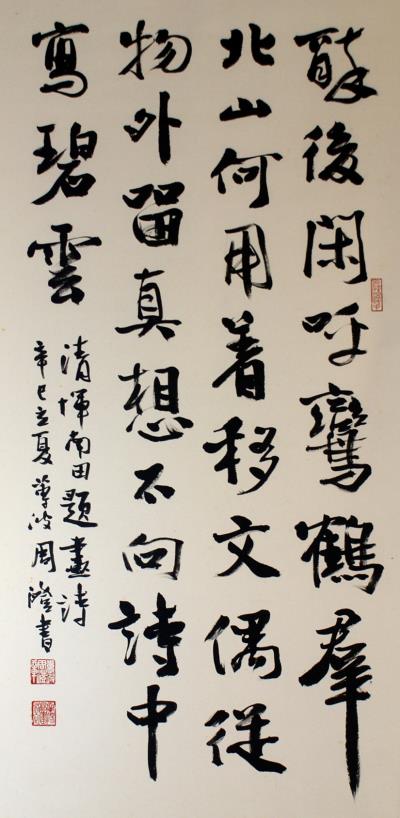 醉後閑呼鸞鶴羣
北山何用着移文偶從
物外留真想不向詩中
寫碧雲
清惲南田題畫詩
辛巳立夏蓴波周澄書